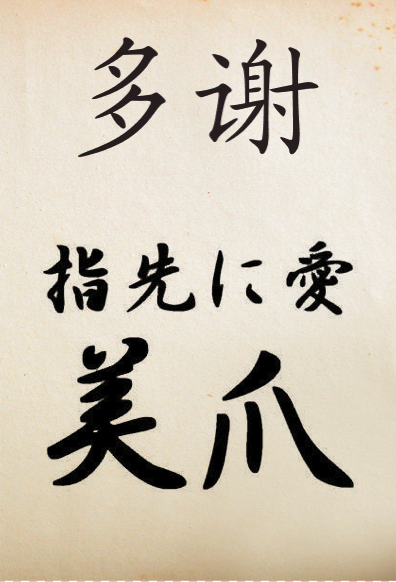 多谢
指先に愛
美爪